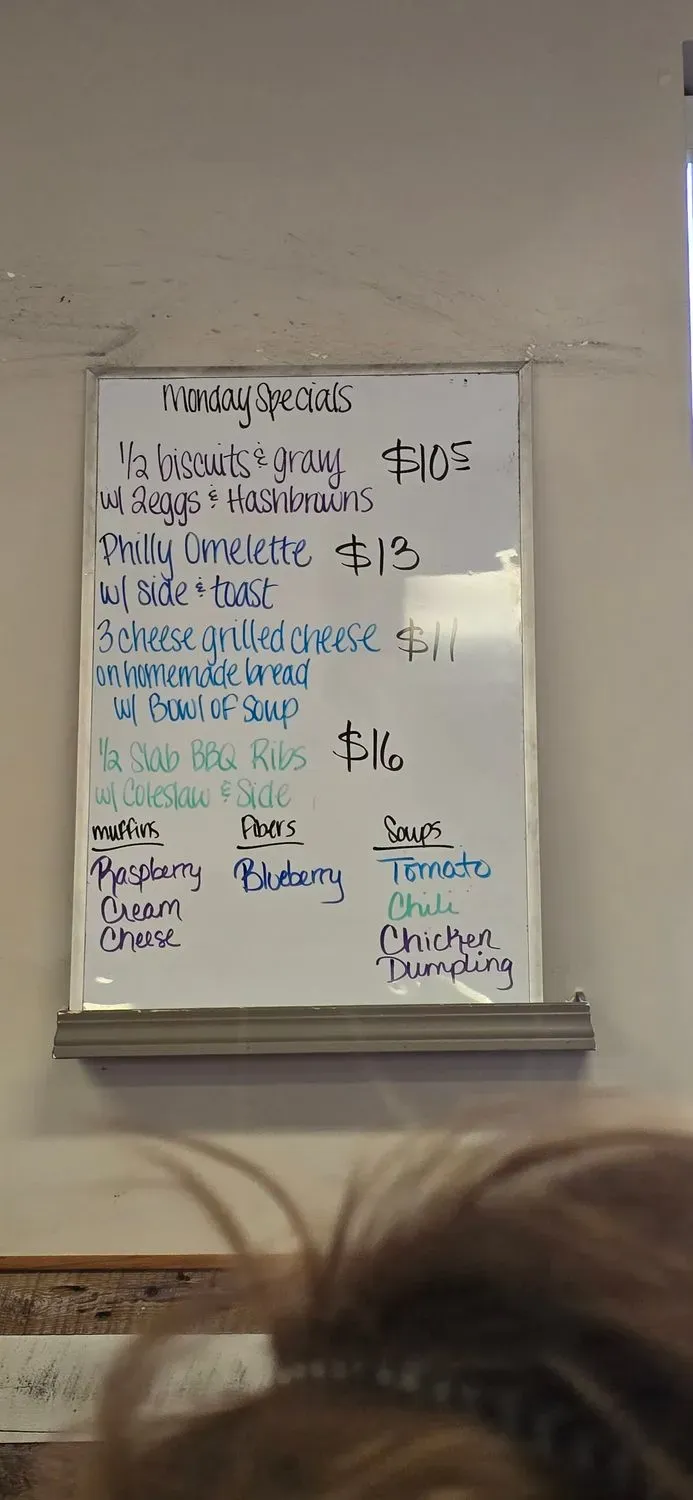 Monday Specials
1/2 biscuits & gravy $10 5
w/ 2eggs & Hashbrowns
Philly Omelette $13
w/ side & toast
3 cheese grilled cheese $11
on homemade bread
w/ Bowl of Soup
1/2 Slab BBQ Ribs $16
w/ Coleslaw & Side
muffins Fibers Soups
Raspberry Blueberry Tomato
Cream Chili
Cheese Chicken
Dumpling